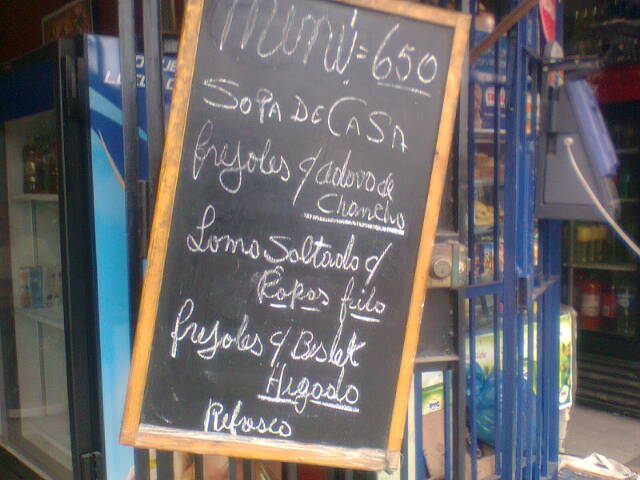 Menú = 650
SOPA DE CASA
frejoles c/ adovo de
Chancho
Lomo Saltado c/
Papas frito
frejoles c/ Bistek
Higado
Refresco